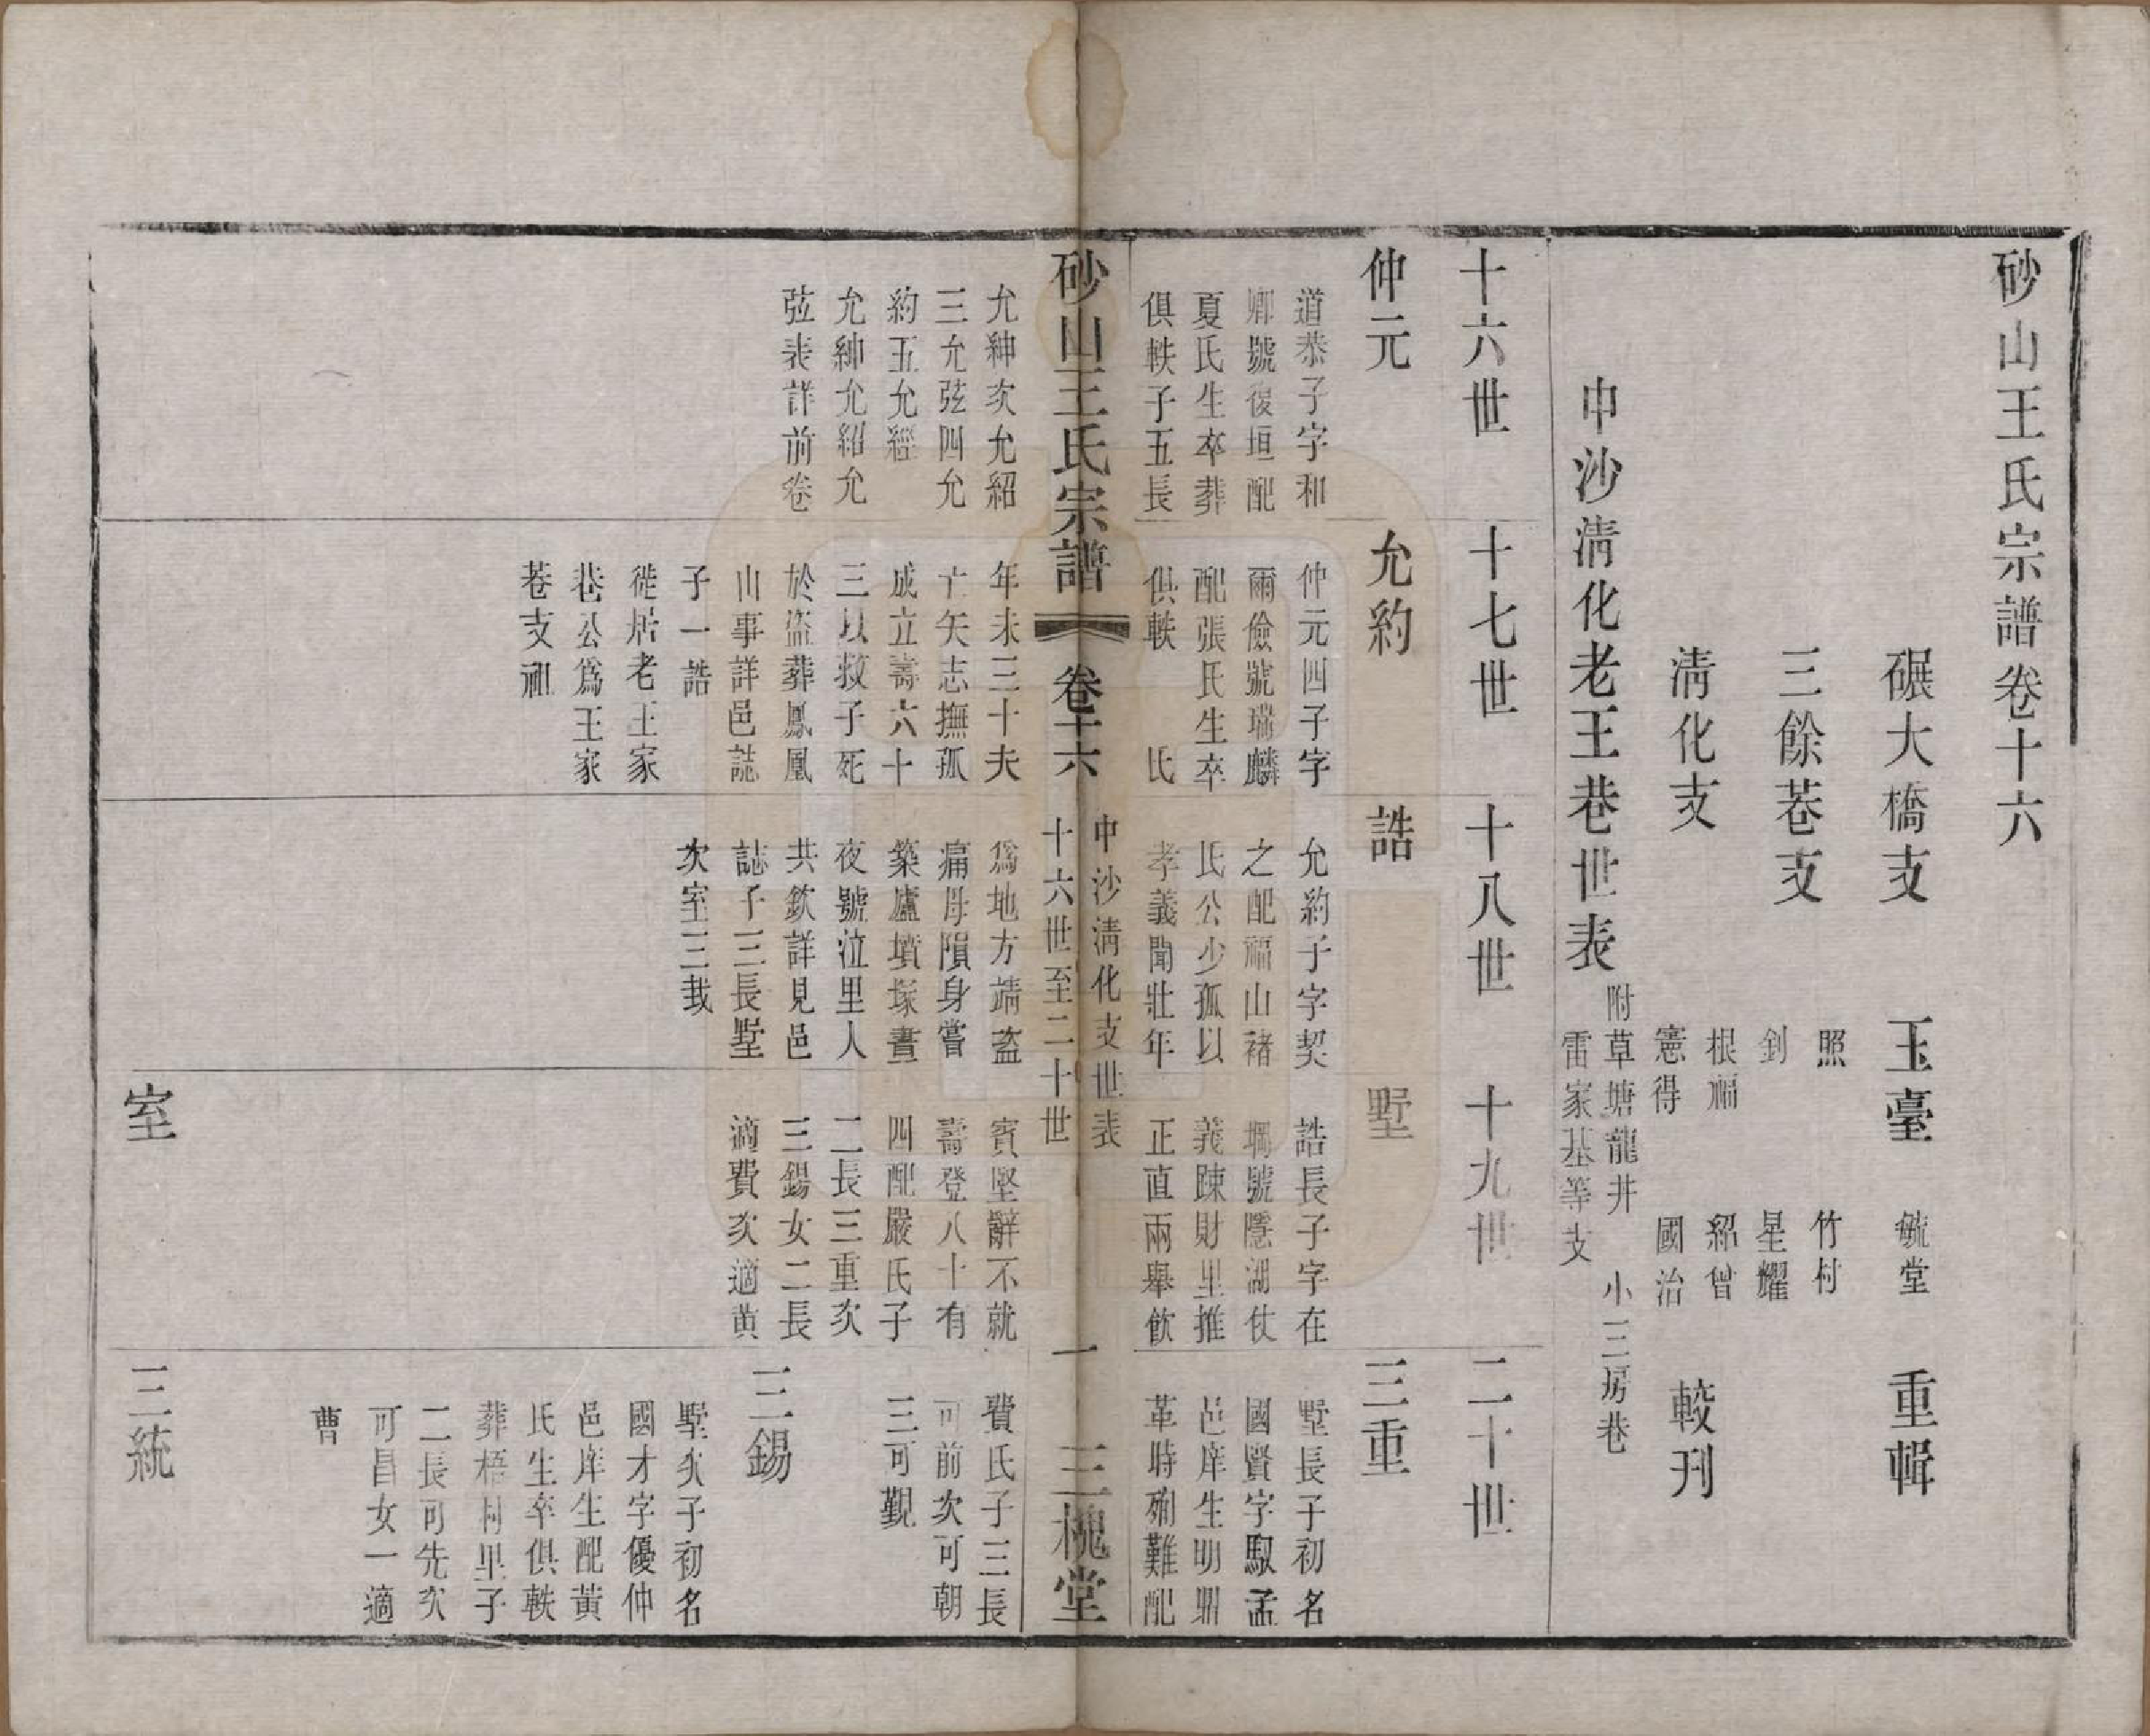 砂山王氏宗譜卷十六
碾大橋支　玉臺　毓堂　重輯
三餘巷支　照　竹村
釗　星耀
清化支　根福　紹曾　較刊
憲得　國治
中沙清化老王巷世表
附草塘龍井　小三房巷
雷家基等支
十六世
十七世
十八世
十九世
二十世
仲元
道恭子字和
卿號復垣配
夏氏生卒葬
俱軼子五長
允紳次允紹
三允弦四允
約五允經
允紳允紹允
弦表詳前卷
允約
仲元四子字
爾儉號瑞麟
配張氏生卒
俱軼　氏
年未三十夫
亡矢志撫孤
成立壽六十
三以救子死
於盜葬鳳凰
山事詳邑誌
子一誥
徙居老王家
巷公為王家
巷支祖
誥
允約子字契
之配福山褚
氏公少孤以
孝義聞壯年
為地方靖盜
痛母隕身嘗
築廬墳塚晝
夜號泣里人
共欽詳見邑
誌子三長墅
次室三㦲
墅
誥長子字在
墹號隱湖仗
義踈財里推
正直兩舉飲
賓堅辭不就
壽登八十有
四配嚴氏子
二長三重次
三錫女二長
適費次適黄
三重
墅長子初名
國賢字馭孟
邑庠生明鼎
革時殉難配
費氏子三長
可前次可朝
三可觀
三錫
墅次子初名
國才字優仲
邑庠生配黃
氏生卒俱軼
葬梧村里子
二長可先次
可昌女一適
曹
室
三統
砂山王氏宗譜
卷十六
中沙清化支世表
十六世至二十世
一
三槐堂